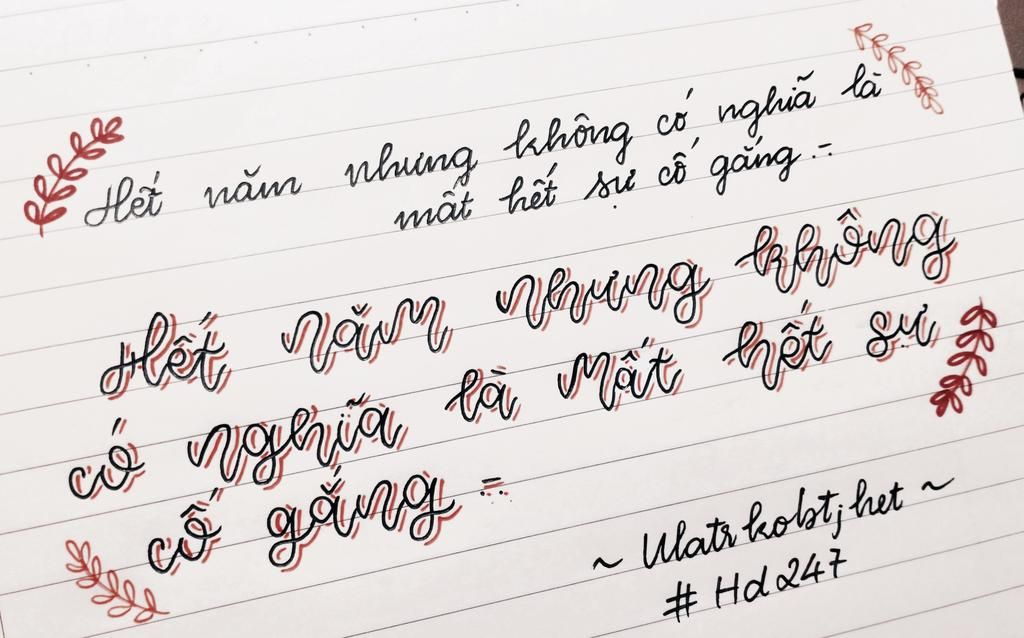 Hết năm nhưng không có nghiã là
mất hết sự cố gắng :-
Hết năm nhưng không
có nghĩa là mất hết sự
cố gắng :-
~ Ulatr kobtjhet ~
# Hd247